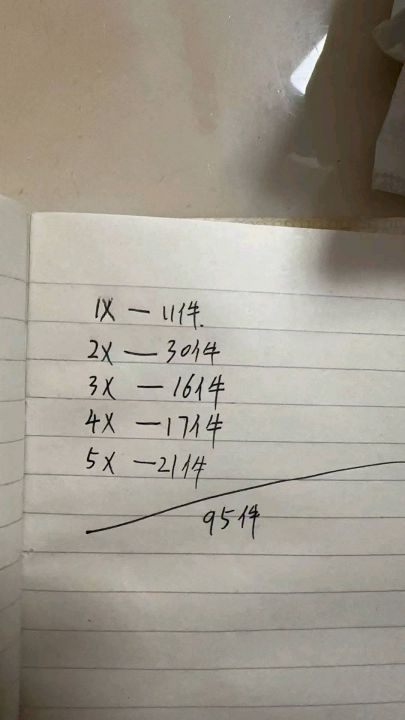 1X — 11件.
2X — 30件
3X — 16件
4X — 17件
5X — 21件
95件